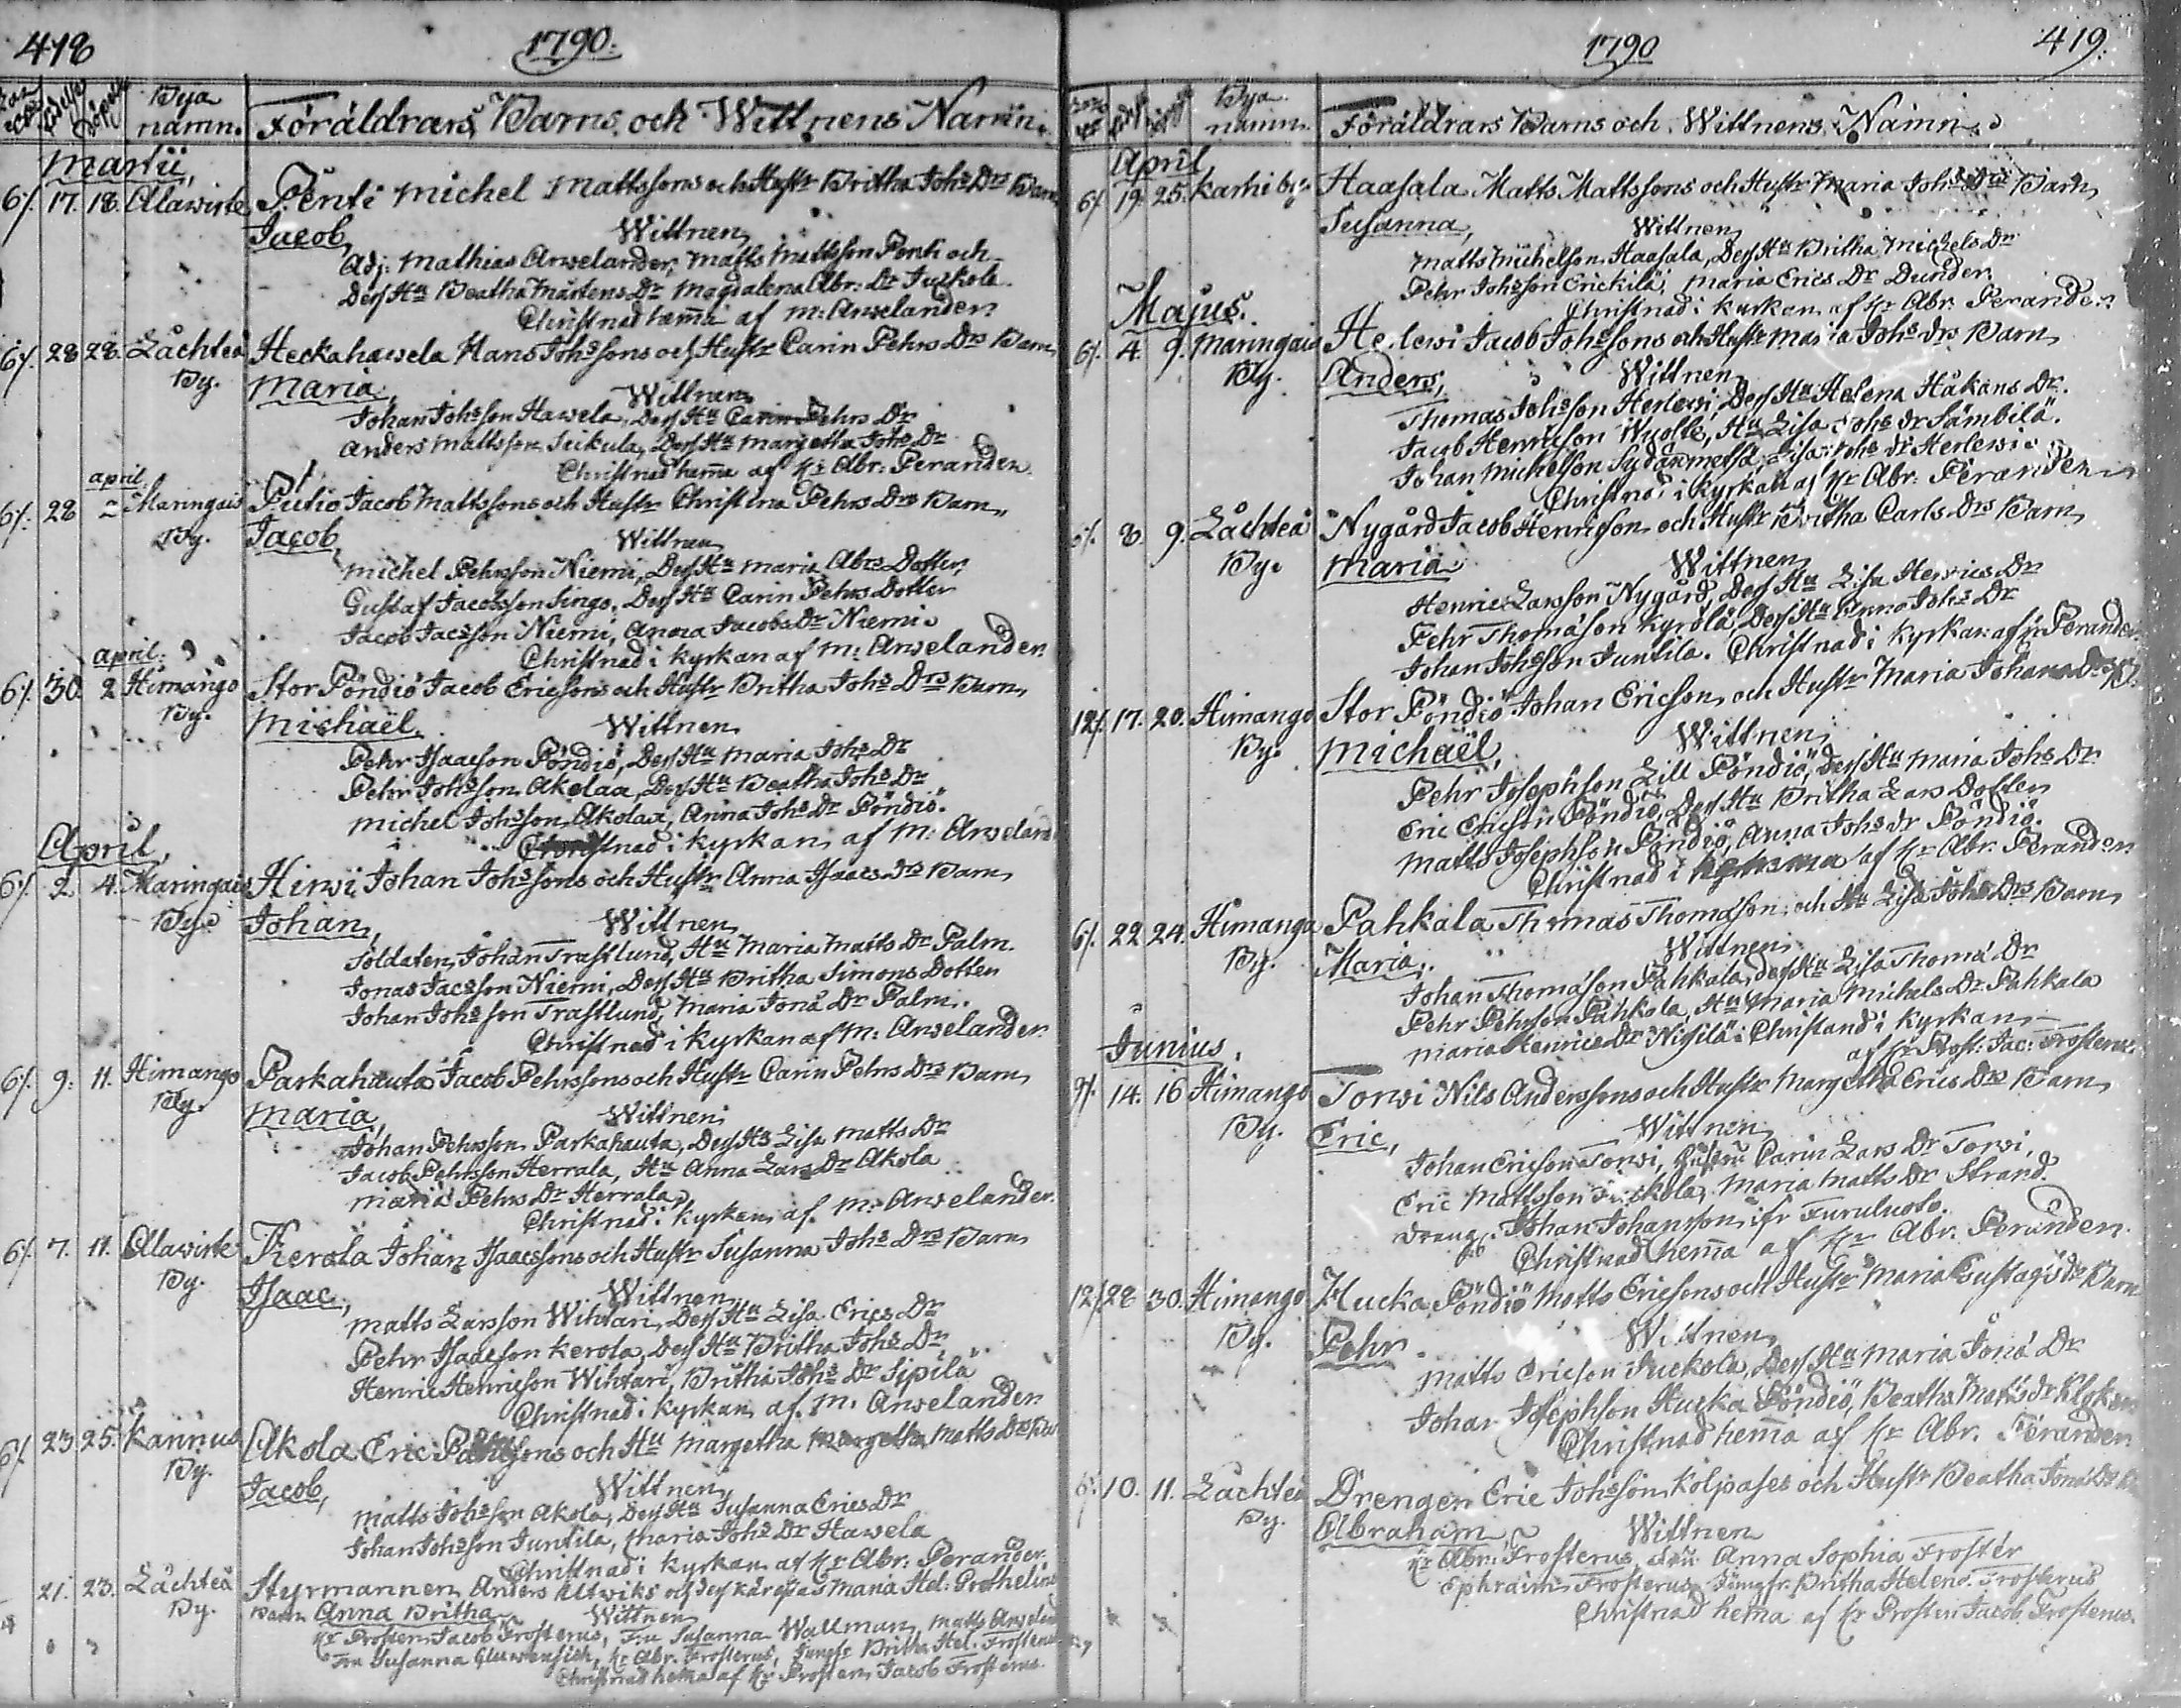 418
1790.
Födelse Döpelse
Bya
namn.
Föräldrars, Barns, och Wittnens Namn.
Martii,
6/. 17. 18. Alawirte Penti Michel Mattssons och Hustr Britha Johs Drs Barn
Jacob, Wittnen
Adj: Mathias Arwelander, Matts Mattsson Penti och
Dess Hu Beatha Mårtens Dr Magdalena Abr: Dr Juckola
Christnad hema af M: Arwelander
6/. 28 28. Låchteå Heckahawela Hans Johssons och Hustr Carin Pehrs Drs Barn
By. Maria, Wittnen
Johan Johsson Hawela, Dess Hu Carin Pehrs Dr
Anders Mattsson Seikula, Dess Hu Margetha Johs Dr
Christnad hema af Hr Abr: Perander.
april.
6/. 28 2 Maringais Putio Jacob Mattssons och Hustr Christina Pehrs Drs Barn
By. Jacob Wittnen
Michel Pehrsson Niemi, Dess Hu Maria Abrs Dotter,
Gustaf Jacobsson Singo, Dess Hu Carin Pehrs Dotter
Jacob Jacsson Niemi, Anna Jacobs Dr Niemi
Christnad i kyrkan af M: Arwelander.
april.
6/. 30. 2 Himango Stor Pöndiö Jacob Ericssons och Hustr Britha Johs Drs Barn
By. Michaël, Wittnen
Pehr Isacsson Pöndiö, Dess Hu Maria Johs Dr
Pehr Johsson Akolaa, Dess Hu Beatha Johs Dr
Michel Johsson Akolax, Anna Johs Dr Pöndiö.
Christnad i kyrkan af M: Arwelan
April,
6/. 2. 4. Maringais Hirwi Johan Johssons och Hustr Anna Isaacs Drs Barn
By. Johan, Wittnen
Soldaten, Johan Trastlund, Hu Maria Matts Dr Palm.
Jonas Jacsson Niemi, Dess Hu Britha Simons Dotter
Johan Johsson Trastlund, Maria Jona Dr Palm.
Christnad i kyrkan af M: Arwelander.
6/. 9. 11. Himango Parkahauta Jacob Pehrssons och Hustr Carin Pehrs Drs Barn
By. Maria, Wittnen
Johan Pehrsson Parkahauta, Dess Hu Lisa Matts Dr
Jacob Pehrsson Herrala, Hu Anna Lars Dr Akola
Maria Pehrs Dr Herrala,
Christnad i kyrkan af M: Arwelander.
6/. 7. 11. Alawirte Kerola Johan Isaacssons och Hustr Susanna Johs Drs Barn
By. Isaac, Wittnen
Matts Larsson Wihtari, Dess Hu Lisa Erics Dr
Pehr Isaacson Kerola, Dess Hu Britha Johs Dr
Henric Henricson Wihtari, Britha Johs Dr Sipilä
Christnad i kyrkan af M. Arwelander
6/. 23 25. Kannus Akola Eric och Hu Margetha Margetha Matts Drs Bar
By. Jacob, Wittnen
Matts Johsson Akola, Dess Hu Susanna Erics Dr
Johan Johsson Juntila, Maria Johs Dr Hawela
Christnad i kyrkan af Hr Abr: Perander.
21. 23. Låchteå Styrmannen Anders Altwiks och dess kåresas Maria Hel: Grothelins
By. Barn Anna Britha Wittnen
Hr Prosten Jacob Frosterus, Fru Susanna Wallman, Matts Arwelan
Fru Susanna, Hr Abr. Frosterus, Jungfr Britha Hel. Frosterus
Christnad hema af Hr Prosten Jacob Frosterus.
1790
419.
Bya
namn.
Föräldrars Barns och Wittnens Namn.
April
6/. 19. 25. Karhi by Haasala Matts Mattssons och Hustr Maria Johs Drs Barn
Susanna, Wittnen
Matts Michelson Haasala, Dess Hu Britha Michels Dr
Pehr Johsson Erickilä, Maria Erics Dr Dunder.
Christnad i kyrkan af Hr Abr. Perander.
Majus.
6/. 4. 9. Maringais Herlewi Jacob Johssons och Hustr Maria Johs Drs Barn
By. Anders, Wittnen
Thomas Johsson Herlewi, Dess Hu Helena Håkans Dr.
Jacob Henricson Wuolle, Hu Lisa Johs dr Sämbilä.
Johan Michelson Sydänmetsä, Lisa Johs dr Herlewi
Christnad i Kyrkan af Hr Abr: Perander
8. 9. Låchteå Nygård Jacob Henricson och Hustr Britha Carls Drs Barn
By. Maria Wittnen
Henric Larsson Nygård, Dess Hu Lisa Henrics Dr
Pehr Thomason Kyrölä, Dess Hu Anna Johs Dr
Johan Johsson Juntila. Christnad i kyrkan af Hr Perander
12/. 17. 20. Himango Stor Pöndiö Johan Ericson och Hustr Maria Johans Drs B.
By. Michaël, Wittnen
Pehr Josephson Lill Pöndiö, Dess Hu Maria Johs Dr
Eric Ericson Pöndiö, Dess Hu Britha Lars Dotter
Matts Josephson Pöndiö, Anna Johs dr Pöndiö.
Christnad i hemma af Hr Abr. Perander
6/. 22 24. Himanga Pahkala Thomas Thomasson och Hu Lisa Johs Drs Barn
By. Maria, Wittnen
Johan Thomason Pahkala, dess Hu Lisa Thoma Dr
Pehr Pehrson Pahkola, Hu Maria Michels Dr Pahkala
Maria Henrics Dr Nigilä. Christnad i Kyrkan
af Hr Prost: Jac: Frosterus.
Junius.
9/. 14. 16 Himango Torwi Nils Anderssons och Hustr Margetha Erics Drs Barn
By. Eric, Wittnen
Johan Ericson Torwi, Hustru Carin Lars Dr Torwi,
Eric Mattsson Juckola, Maria Matts Dr Strand.
Dreng. Johan Johansson ifr Furuluoto.
Christnad hema af Hr Abr. Perander.
12/. 28 30. Himango Hucka Pöndiö Matts Ericsons och Hustr Maria Gustafs dr Barn
By. Pehr Wittnen
Matts Ericson Juckola, Dess Hu Maria Jona Dr
Johan Josephson Hucka Pöndiö, Beatha Matts dr
Christnad hema af Hr Abr. Perander
6/. 10. 11. Låchteå Drengen Eric Johsson Kolpases och Hustr Beatha Jona Drs
By. Abraham Wittnen
Hr Abr. Frosterus, Fru Anna Sophia Froster
Ephraim Frosterus, Jungfr. Britha Helena Frosterus
Christnad hema af Hr Prosten Jacob Frosterus.